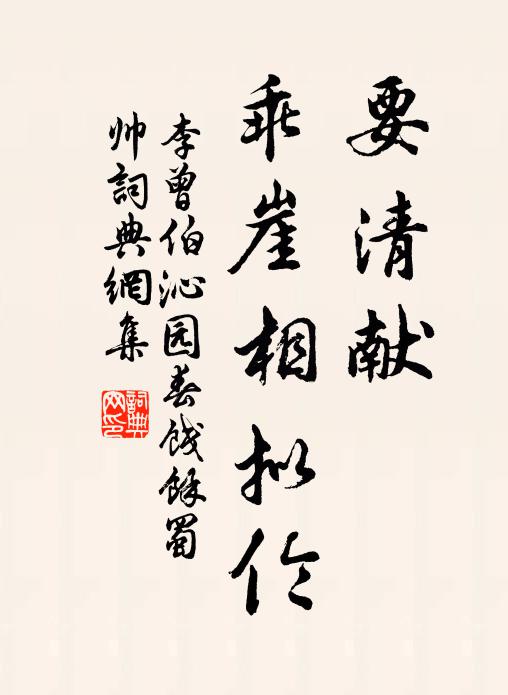 要清献
乖崖相拟伦
李曾伯沁园春饯馀蜀
帅詞典網集
詞典网印